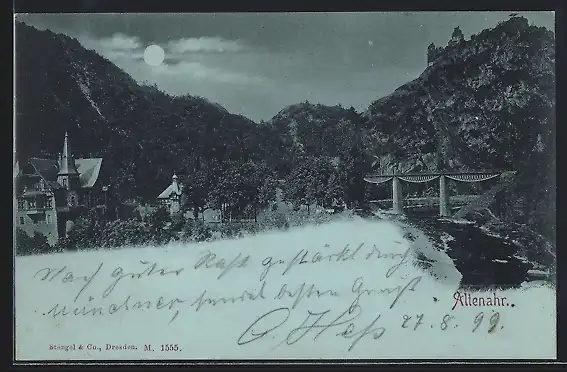 Nach guter Rast gestärkt durch
Münchner, sendet besten Gruß
C. Heß 27.8.99.
Altenahr.
Stengel & Co., Dresden. M. 1555.